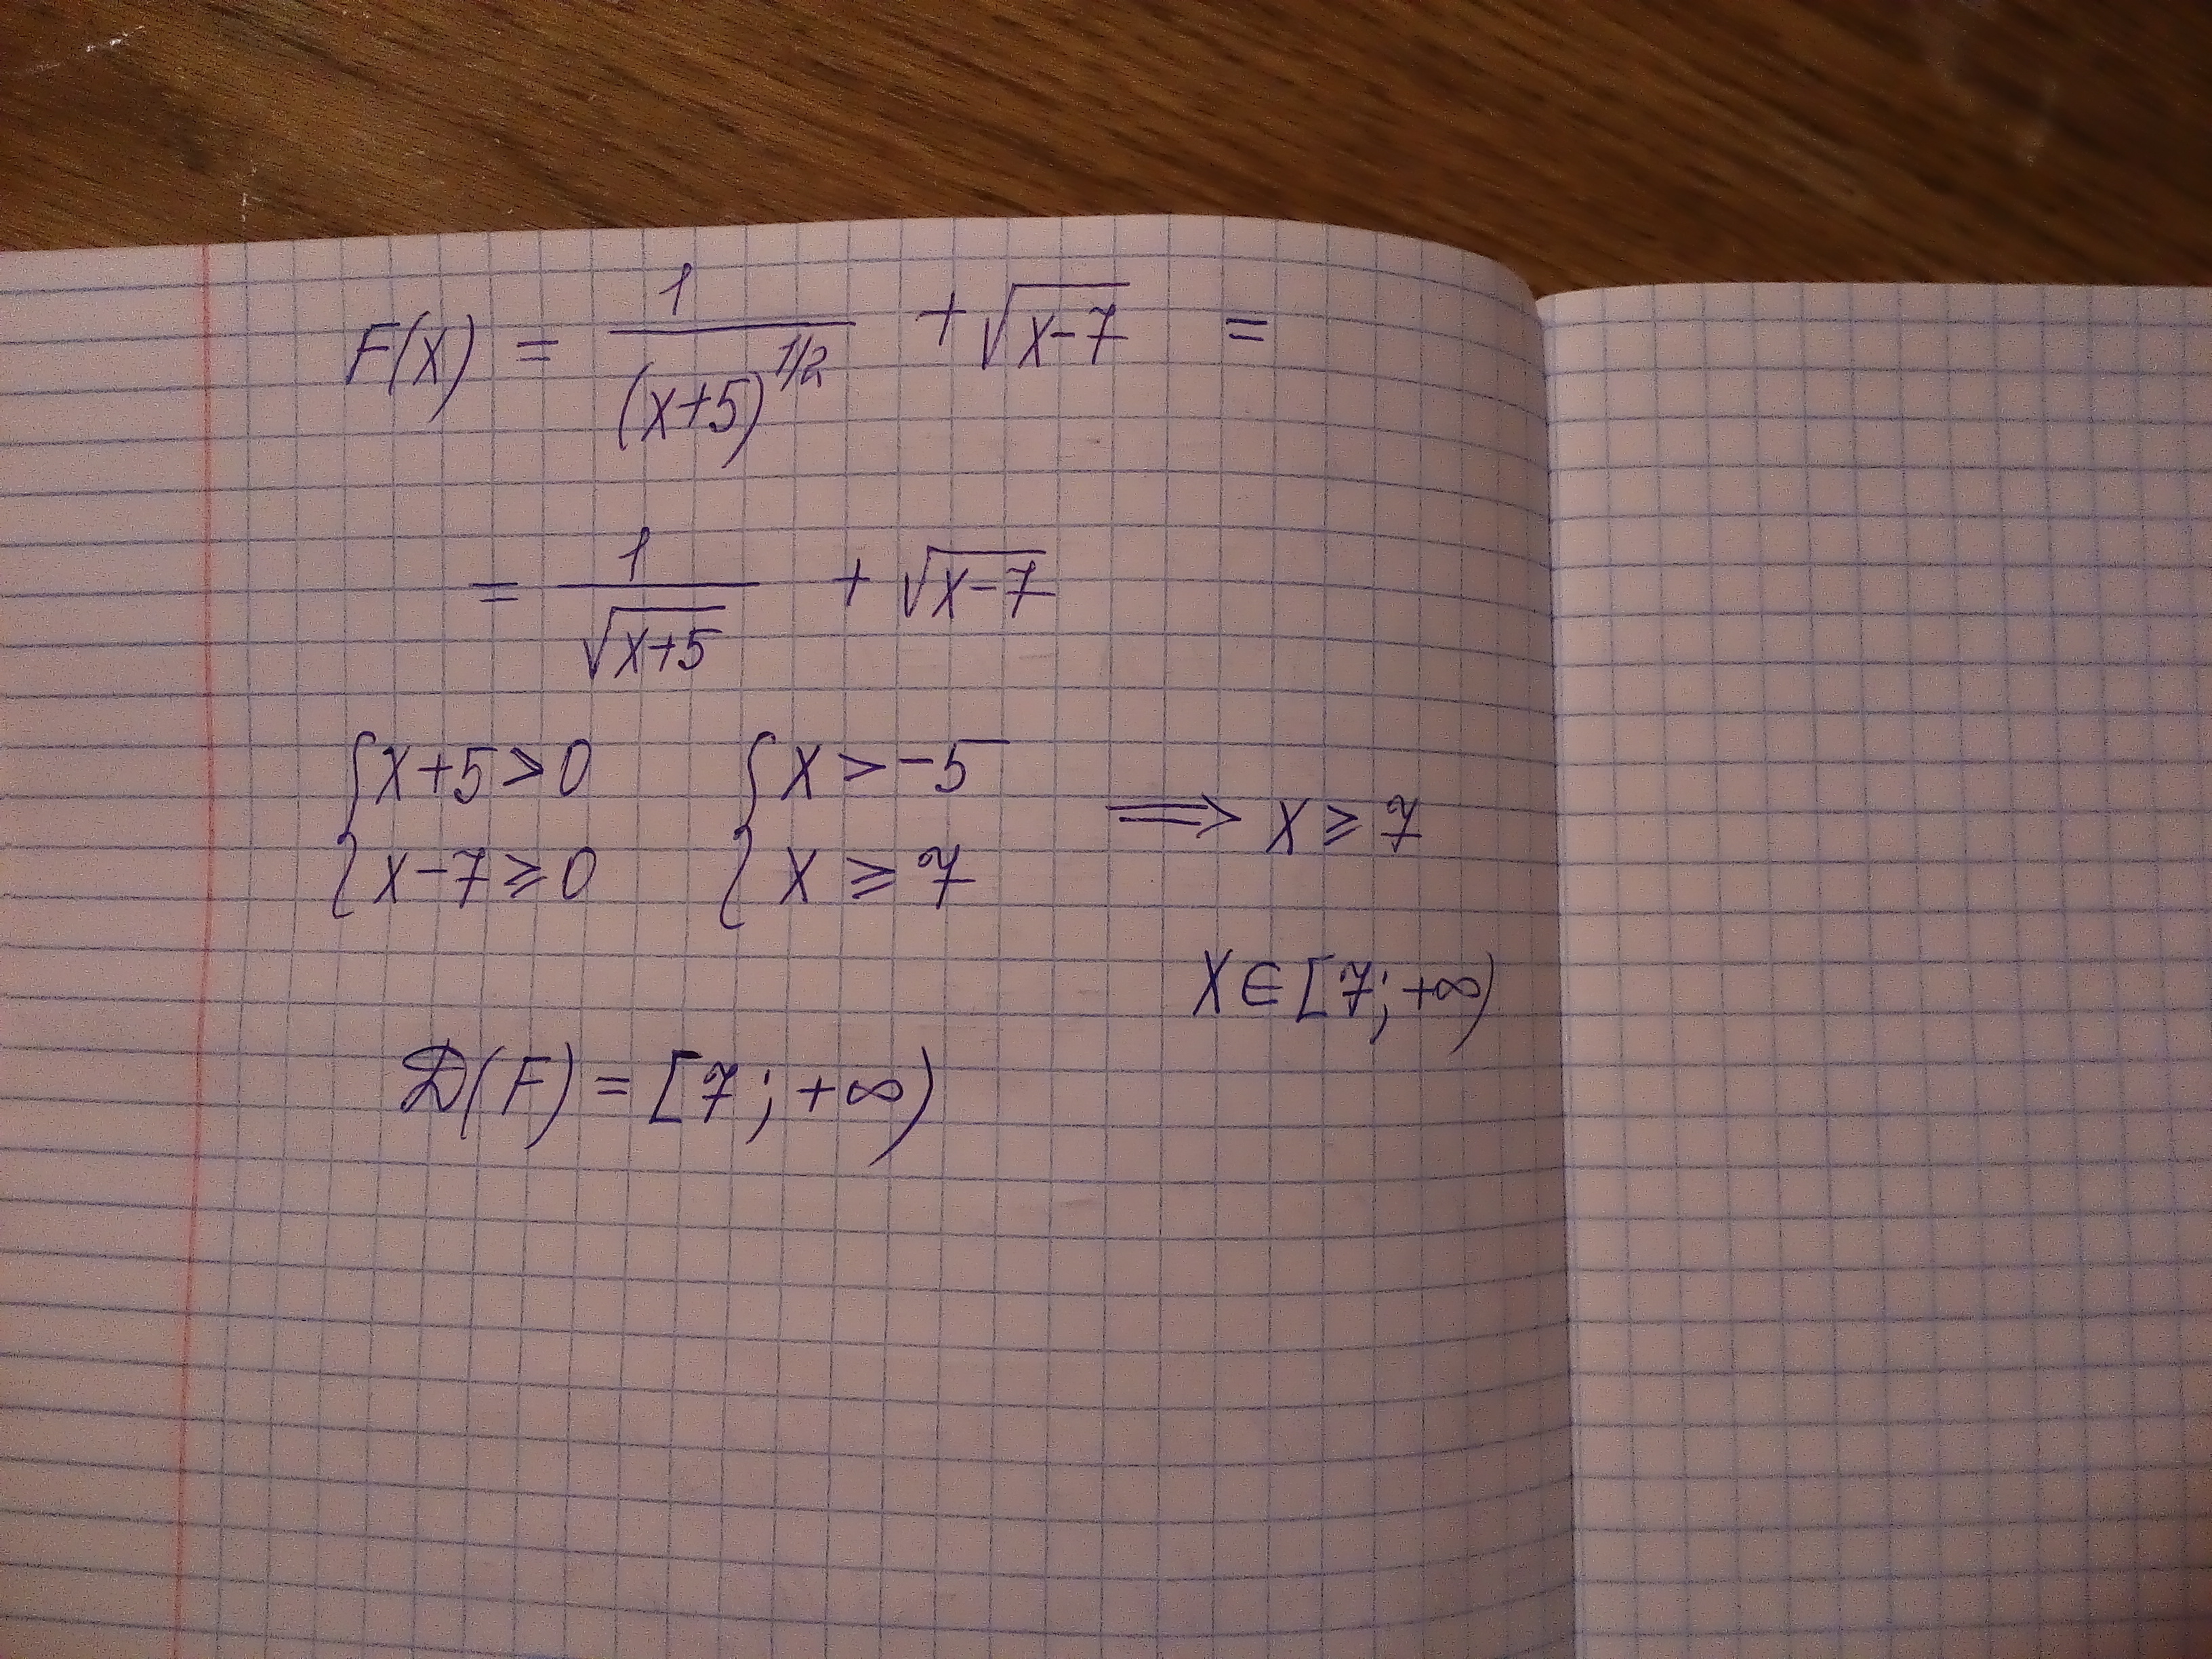 F(x) = 1/(x+5)^1/2 + √(x-7) =
= 1/√(x+5) + √(x-7)
{ x+5>0 { x>-5
{ x-7⩾0 { x⩾7 ⟹ x⩾7
x∈[7;+∞)
D(F)=[7;+∞)